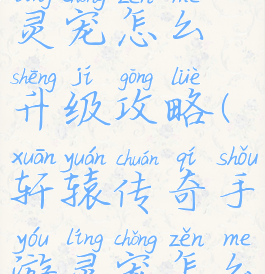 líng chǒng zěn me
灵宠怎么
shēng jí gōng lüè
升级攻略(
xuān yuán chuán qí shǒu
轩辕传奇手
yóu líng chǒng zěn me
游灵宠怎么